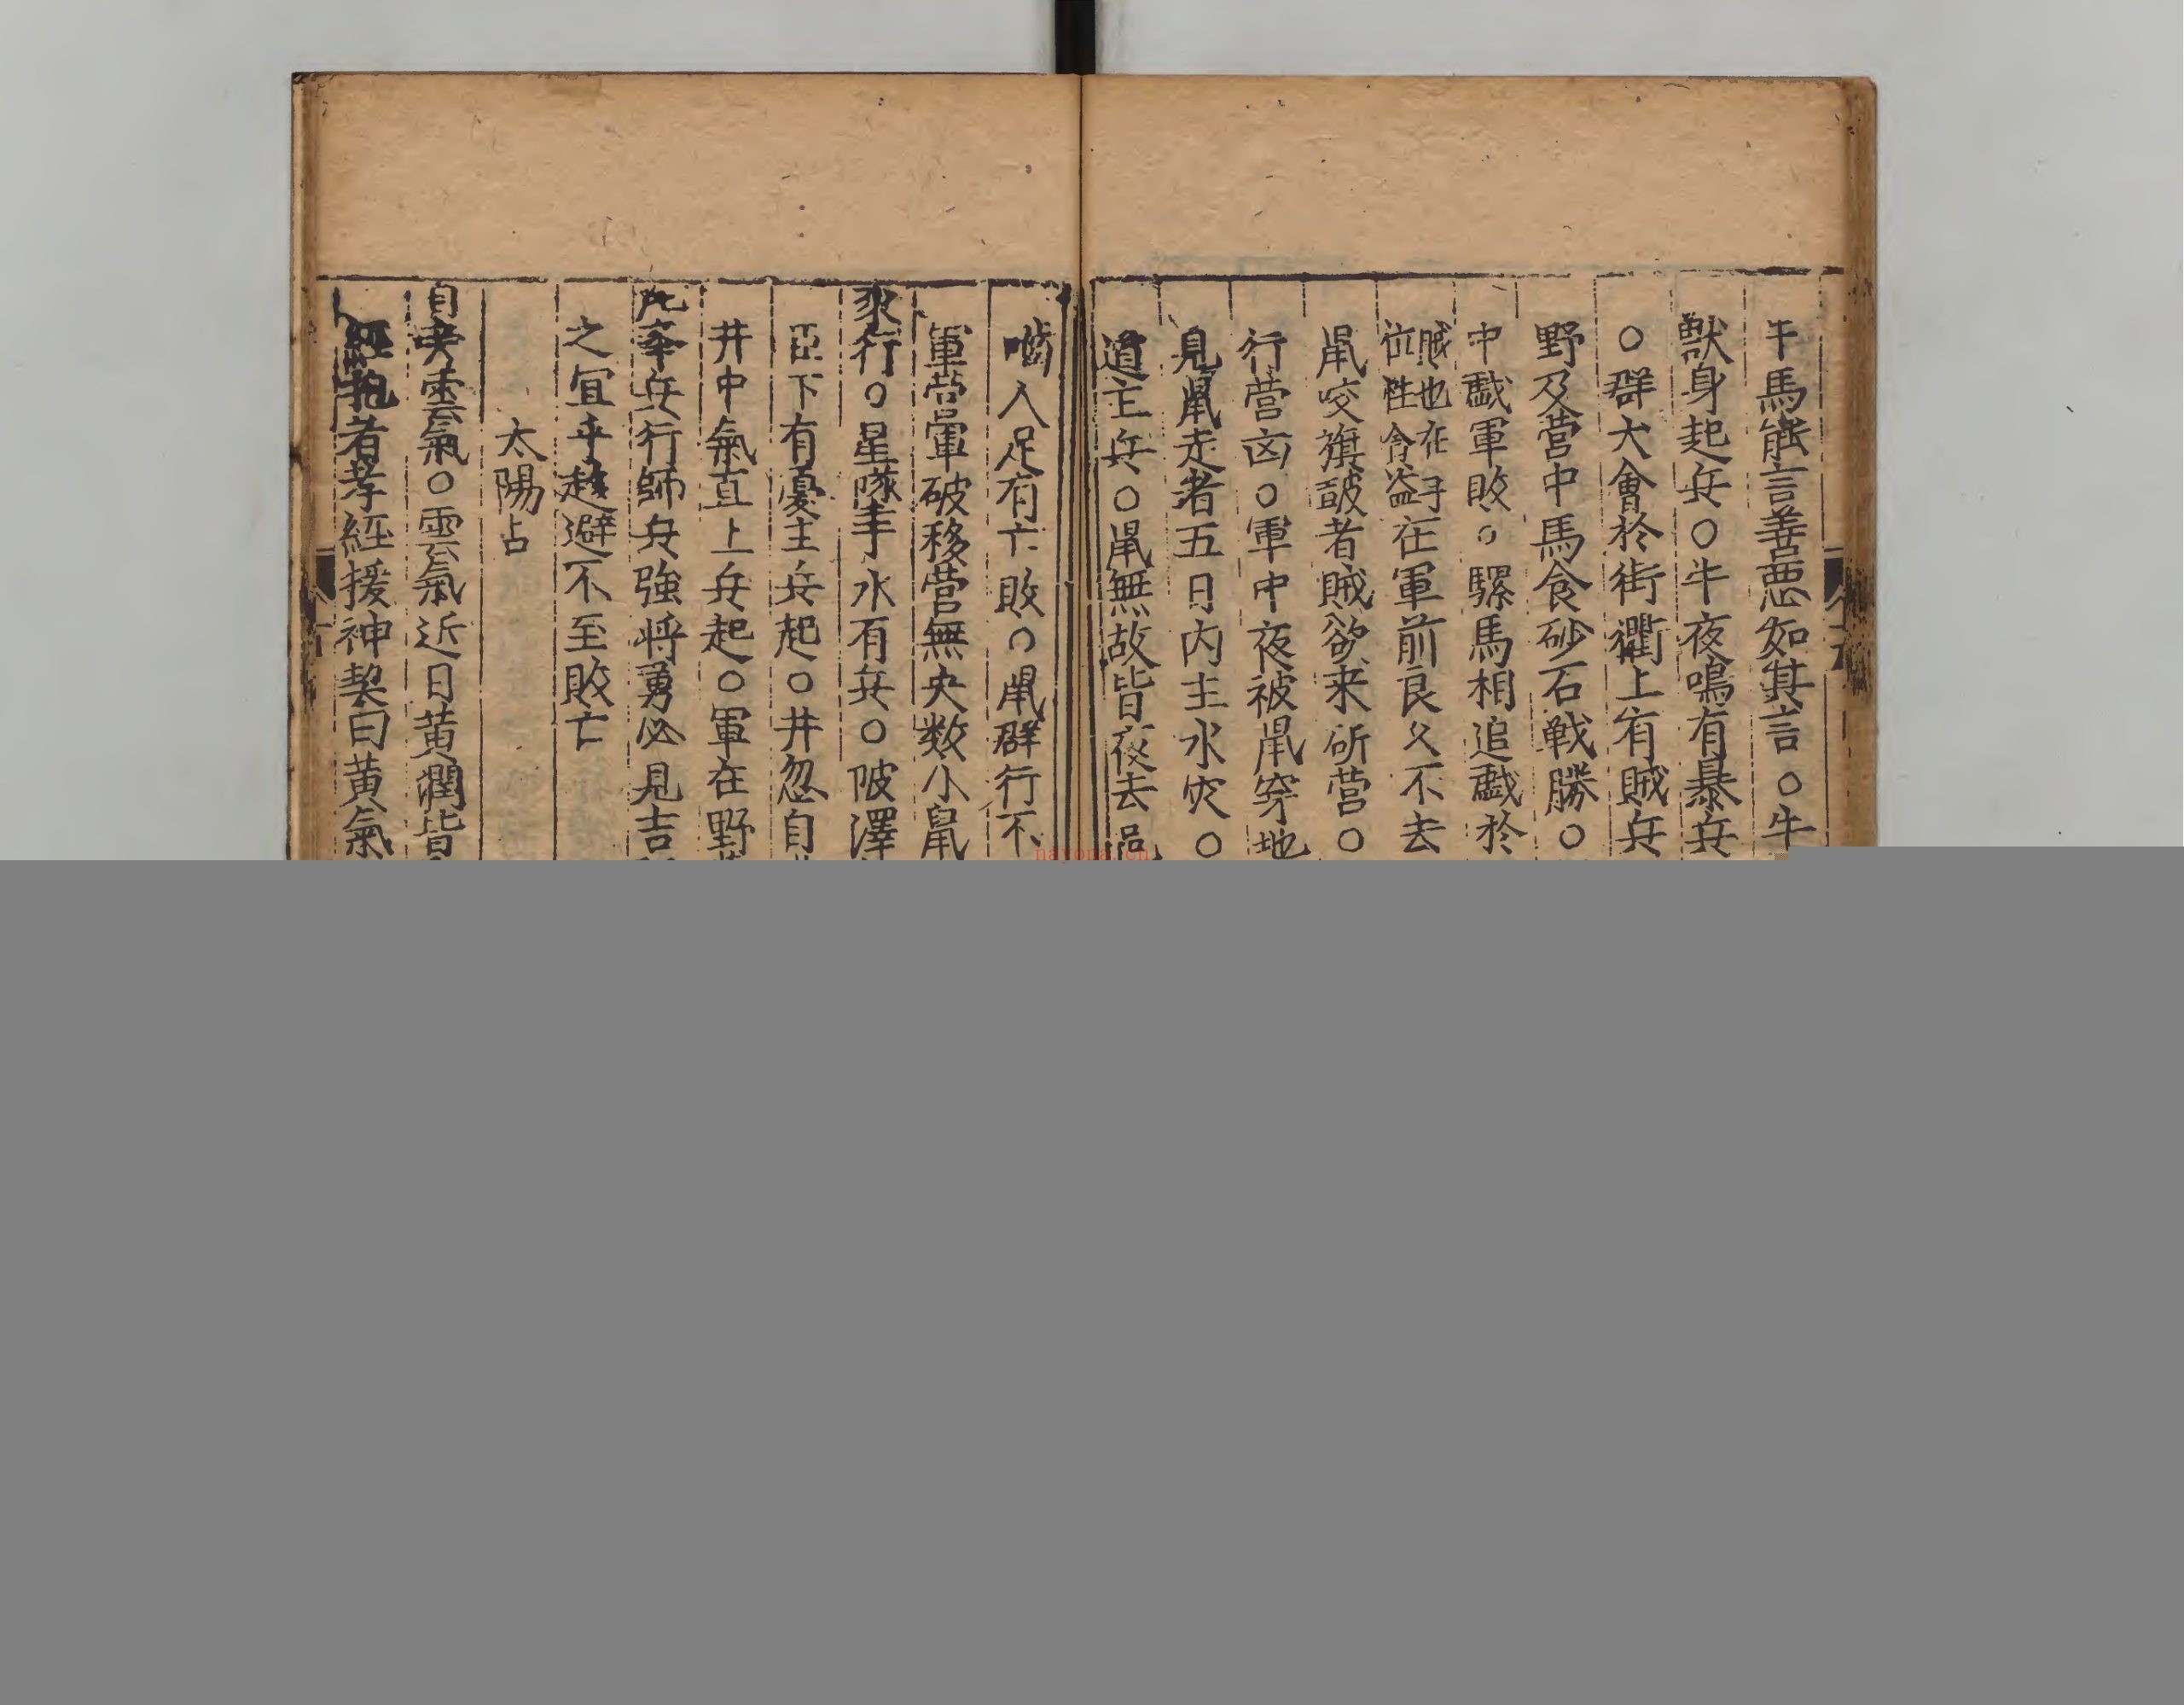 牛馬能言善惡如其言○牛
獸身起兵○牛夜鳴有暴兵
○群犬會於街衢上有賊兵
野及营中馬食砂石戦勝○
中戱軍敗○騾馬相追戱於
賊也在子
位性貪盗
在軍前良久不去
鼠咬旗皷者賊欲来斫营○
行营凶○軍中夜被鼠穿地
見鼠走者五日内主水灾○
道主兵○鼠無故皆夜去邑
嚙人足有亡敗○鼠群行不
軍营軍破移营無央数小鼠
衆行○星墜水有兵○陂澤
臣下有憂主兵起○井忽自
井中氣直上兵起○軍在野
凡率兵行師兵強将勇必見吉
之宜乎趍避不至敗亡
太陽占
雲氣○雲氣近日黄潤皆
抱者孝経援神契曰黄氣
nayona.cn